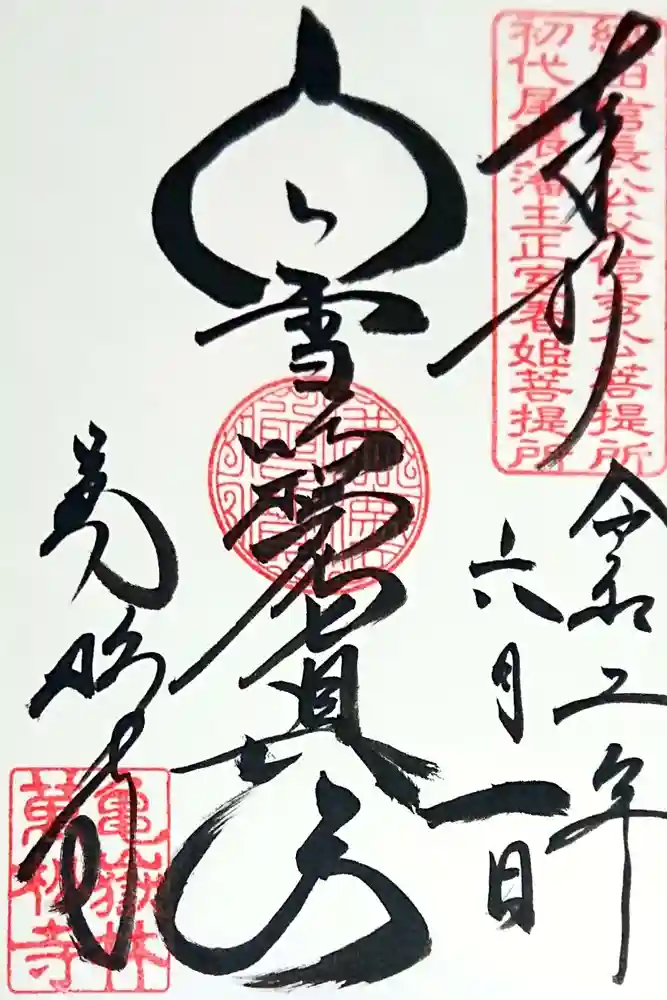 奉拝
織田信長公父信秀公菩提所
初代尾張藩主正室春姫菩提所
令和二年
六月一日
白雪吒枳尼真天
萬松寺
龜嶽林
萬松寺